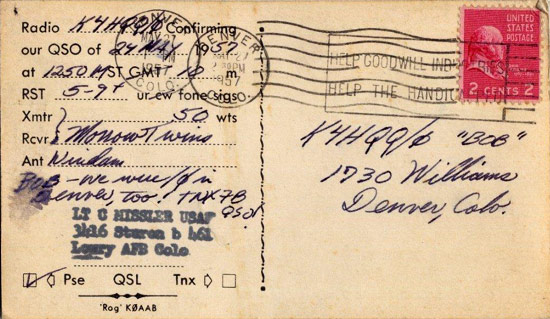 Radio K4HQQ/Ø Confirming
our QSO of 24 MAY 1957
at 1250 MST GMT 10 m
RST 5-9+ ur cw fone sigs
Xmtr 50 wts
Rcvr Morrow Twins
Ant Windom
BOB - we were /Ø in
Denver, too! TNX 7B
QSO!
LT C MISSLER USAF
3416 Sturon b 461
Lowry AFB Colo
Pse QSL Tnx
'Rog' KØAAB
DENVER
MAY 27
1957
COLO.
DENVER
1957
COLO.
HELP GOODWILL INDUSTRIES
HELP THE HANDICAPPED
UNITED
STATES
POSTAGE
2 CENTS 2
K4HQQ/Ø "BOB"
1730 Williams
Denver, Colo.